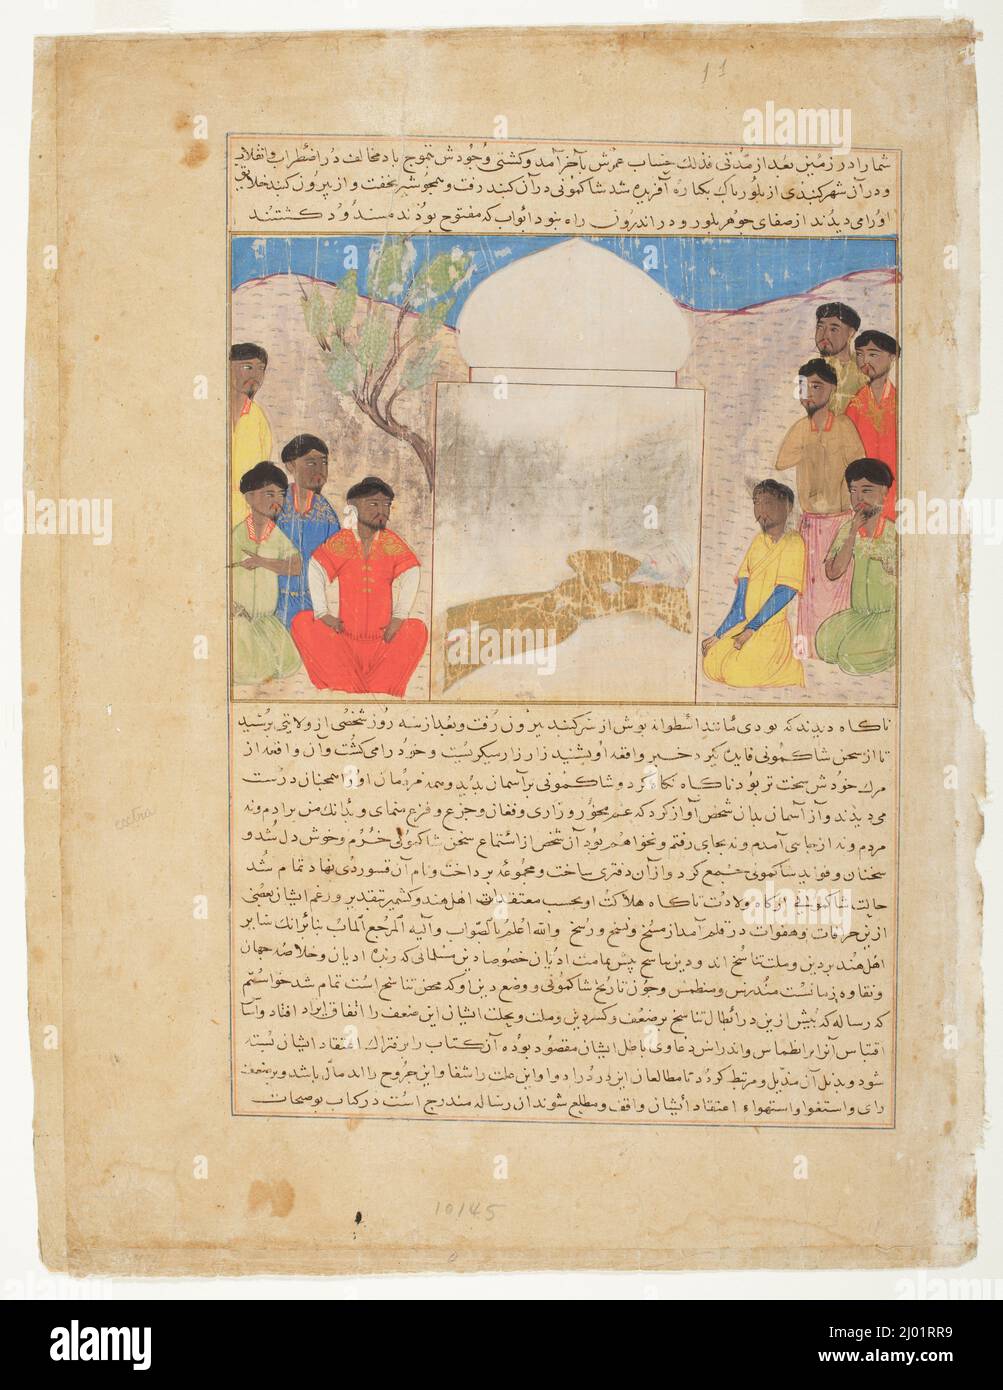 شما را در زمین بعد از مدتی فذلک حساب عمرش بآخر آمد و کشتی وجودش بتموج باد مخالف در اضطراب و انقلاب
و در آن شهر کنبدی از بلور پاک یکپاره آفریده شد شاکمونی در آن کنبد رفت و همچو شیر بخفت و از بیرون کنبد خلایق
او را می دیدند از صفای جوهر بلور و در اندرون راه نبود ابواب که مفتوح بودند مسدود کشتند
ناکاه دیدند که نوری مانند اسطوانه نورش از سر کنبد بیرون رفت و بعد از سه روز شخصی از ولایتی برسید
تا از سخن شاکمونی فایده کیرد خبر واقعه او بشنید زار زار میکریست و خود را می کشت و آن واقعه از
مرک خودش سخت تر بود ناکاه نکاه کرد و شاکمونی بر آسمان بدید و همه مردمان او را همچنان درست
می دیدند و از آسمان بدان شخص آواز کرد که غم مخور و زاری و فغان و جزع و فزع منمای و بدانک من برادم و نه
مردم و نه از جایی آمدم و نه بجای رفتم و نخواهم بود آن شخص از استماع سخن شاکمونی خرم و خوش دل شد و
سخنان و فواید شاکمونی جمع کرد و از آن دفتری ساخت و مجموعه پرداخت و نام آن نهاد تمام شد
حالت شاکمونی از کاه ولادت تا کاه هلاکت او بحسب معتقدات اهل هند و کشمیر و زعم ایشان بعضی
ازین خرافات و هفوات در قلم آمد از مسخ و نسخ و رسخ والله اعلم بالصواب والیه المرجع المآب بنا برانک سایر
اهل هند برین و ملت تناسخ اند و دین تناسخ پیش تمامت ادیان خصوصا دین مسلمانی که زبده ادیان و خلاصه جهان
و نقاوه زمانست مندرس و منطمس و چون تاریخ شاکمونی و وضع دین او که محض تناسخ است تمام شد خواستم
که رساله که پیش ازین در ابطال تناسخ بر ضعف و کسر دین و ملت و نحلت ایشان این ضعف را اتفاق ایراد افتاد و اساس
اقتباس آنرا بر انطماس و اندراس دعاوی باطل ایشان مقصود بوده آن کتاب را بر فتراک اعتقاد ایشان بسته
شود و بذیل آن مذیل و مرتبط کردد تا مطالعان این درد را دوا و این علت را شفا و این جروح را اندمال باشد و بر ضعف
رای و استغوا و استهواء اعتقاد ایشان واقف و مطلع شوند آن رساله مندرج است در کتاب توضیحات
extra
11
10145
alamy
Image ID: 2J01RR9
www.alamy.com